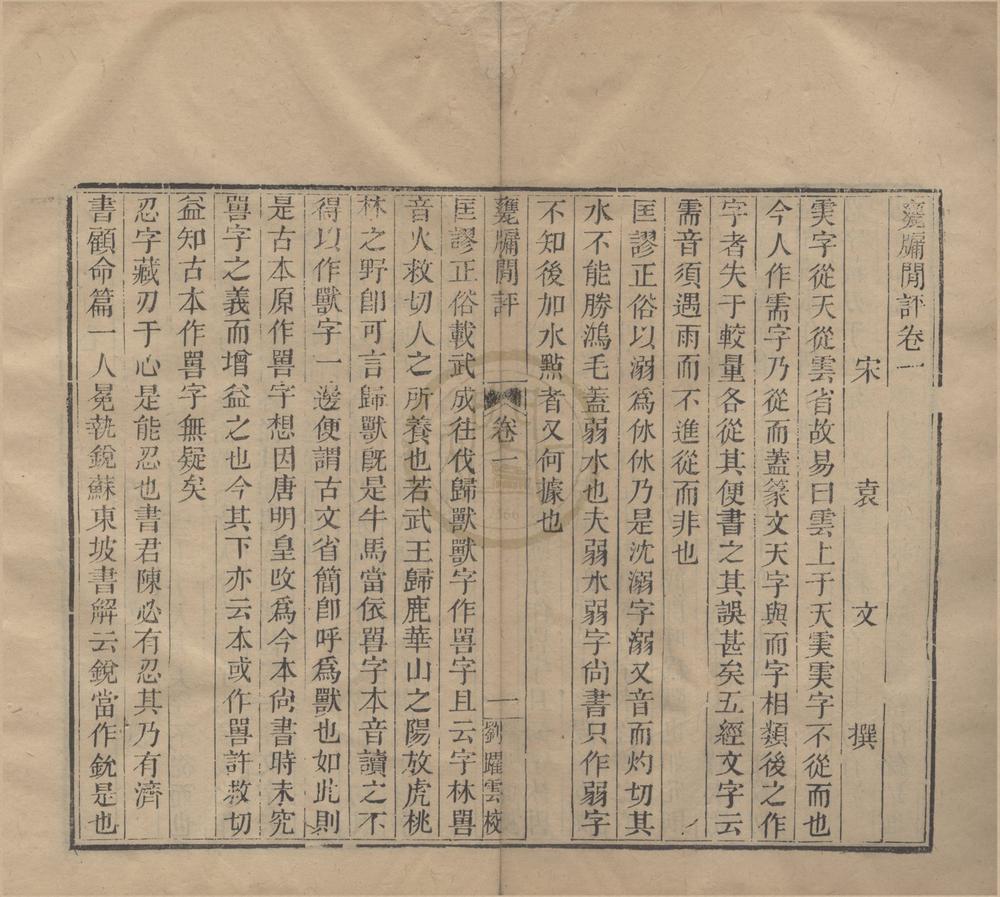 甕牖閒評卷一
宋 袁 文 撰
䨏字從天從雲省故易曰雲上于天䨏䨏字不從而也
今人作需字乃從而蓋篆文天字與而字相類後之作
字者失于較量各從其便書之其誤甚矣五經文字云
需音須遇雨而不進從而非也
匡謬正俗以溺爲休休乃是沈溺字溺又音而灼切其
水不能勝鴻毛蓋弱水也夫弱水弱字尚書只作弱字
不知後加水點者又何據也
甕牖閒評 卷一 一 劉躍雲校
匡謬正俗載武成往伐歸獸獸字作嘼字且云字林嘼
音火救切人之所養也若武王歸鹿華山之陽放虎桃
林之野卽可言歸獸旣是牛馬當依嘼字本音讀之不
得以作獸字一邊便謂古文省簡卽呼爲獸也如此則
是古本原作嘼字想因唐明皇改爲今本尚書時未究
嘼字之義而增益之也今其下亦云本或作嘼許救切
益知古本作嘼字無疑矣
忍字藏刃于心是能忍也書君陳必有忍其乃有濟
書顧命篇一人冕執銳蘇東坡書解云銳當作鈗是也